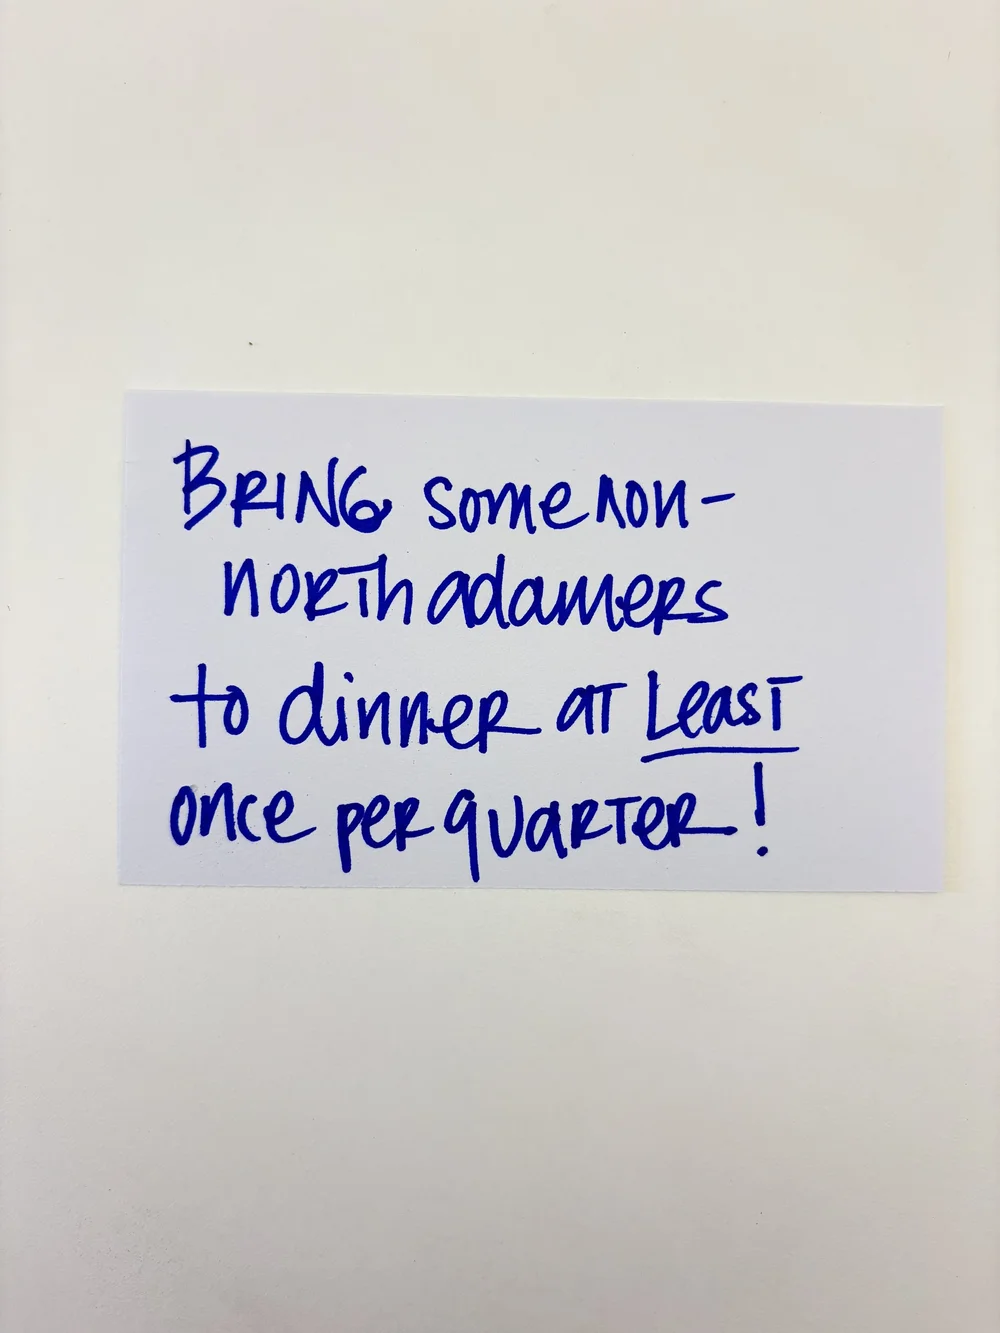 BRING some non-
north adamers
to dinner at Least
once per quarter!